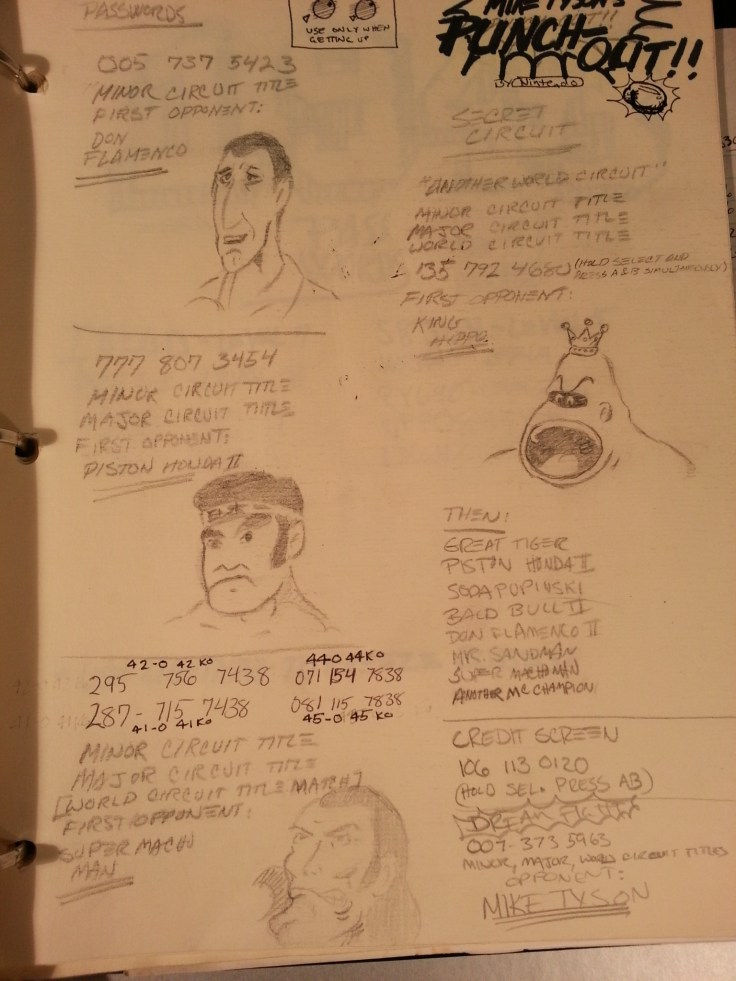 PASSWORDS
005 737 5423
MINOR CIRCUIT TITLE
FIRST OPPONENT:
DON
FLAMENCO
777 807 3454
MINOR CIRCUIT TITLE
MAJOR CIRCUIT TITLE
FIRST OPPONENT:
PISTON HONDA II
42-0 42 KO
295 756 7438
287- 715 7438
41-0 41 KO
44-0 44 KO
071 154 7838
081 115 7838
45-0 45 KO
MINOR CIRCUIT TITLE
MAJOR CIRCUIT TITLE
[WORLD CIRCUIT TITLE MATCH]
FIRST OPPONENT:
SUPER MACHO
MAN
USE ONLY WHEN
GETTING UP
MIKE TYSON'S
PUNCH-
OUT!!
BY Nintendo
SECRET
CIRCUIT
"ANOTHER WORLD CIRCUIT"
MINOR CIRCUIT TITLE
MAJOR CIRCUIT TITLE
WORLD CIRCUIT TITLE
135 792 4680 (HOLD SELECT AND
PRESS A & B SIMULTANEOUSLY)
FIRST OPPONENT:
KING
HIPPO
THEN:
GREAT TIGER
PISTON HONDA II
SODA POPINSKI
BALD BULL II
DON FLAMENCO II
MR. SANDMAN
SUPER MACHO MAN
ANOTHER MC CHAMPION
CREDIT SCREEN
106 113 0120
(HOLD SEL. PRESS AB)
DREAM FIGHT
007-373 5963
MINOR, MAJOR, WORLD CIRCUIT TITLES
OPPONENT:
MIKE TYSON